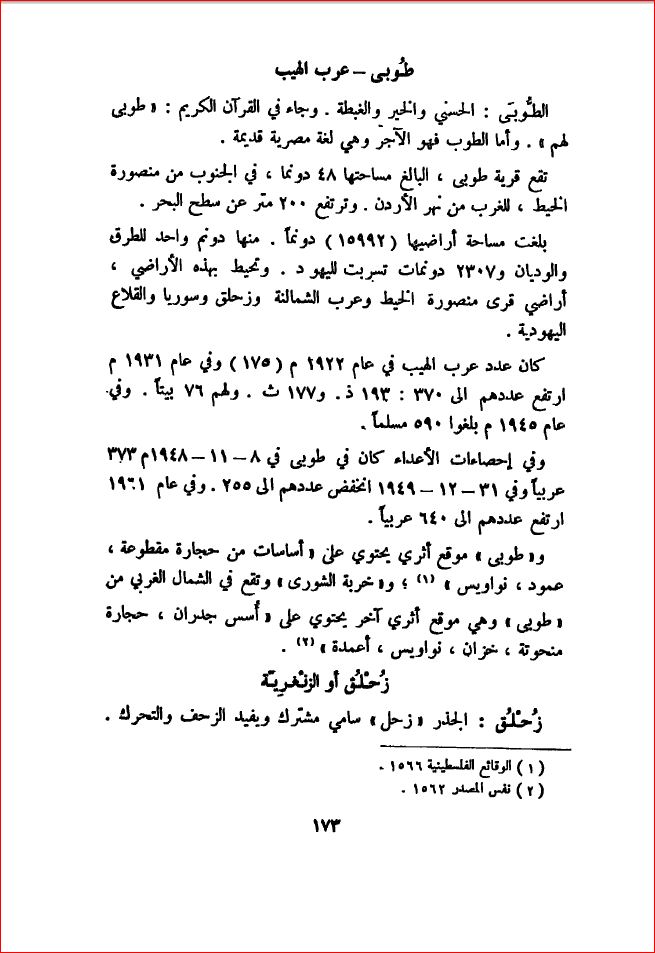 طُوبى – عرب الهيب
الطُّوبَى : الحسنى والخير والغبطة . وجاء في القرآن الكريم : « طوبى
لهم » . وأما الطوب فهو الآجرّ وهي لغة مصرية قديمة .
تقع قرية طوبى ، البالغ مساحتها ٤٨ دونما ، في الجنوب من منصورة
الخيط ، للغرب من نهر الأردن . وترتفع ٢٠٠ متر عن سطح البحر .
بلغت مساحة أراضيها ( ١٥٩٩٢ ) دونماً . منها دونم واحد للطرق
والوديان و٢٣٠٧ دونمات تسربت لليهود . وتحيط بهذه الأراضي ،
أراضي قرى منصورة الخيط وعرب الشمالنة وزحلق وسوريا والقلاع
اليهودية .
كان عدد عرب الهيب في عام ١٩٢٢ م ( ١٧٥ ) وفي عام ١٩٣١ م
ارتفع عددهم الى ٣٧٠ : ١٩٣ ذ. و١٧٧ ث . ولهم ٧٦ بيتاً . وفي
عام ١٩٤٥ م بلغوا ٥٩٠ مسلماً .
وفي إحصاءات الأعداء كان في طوبى في ٨ – ١١ – ١٩٤٨م ٣٧٣
عربياً وفي ٣١ – ١٢ – ١٩٤٩ انخفض عددهم الى ٢٥٥ . وفي عام ١٩٦١
ارتفع عددهم الى ٦٤٠ عربياً .
و« طوبى » موقع أثري يحتوي على « أساسات من حجارة مقطوعة ،
عمود ، نواويس » (١) ؛ و« خربة الشورى » وتقع في الشمال الغربي من
« طوبى » وهي موقع أثري آخر يحتوي على « أُسس جدران ، حجارة
منحوتة ، خزان ، نواويس ، أعمدة » (٢) .
زُحْلُق أو الزنْغرِيّة
زُحْلُق : الجذر « زحل » سامي مشترك ويفيد الزحف والتحرك .
( ١ ) الوقائع الفلسطينية ١٥٦٦ .
( ٢ ) نفس المصدر ١٥٦٢ .
١٧٣